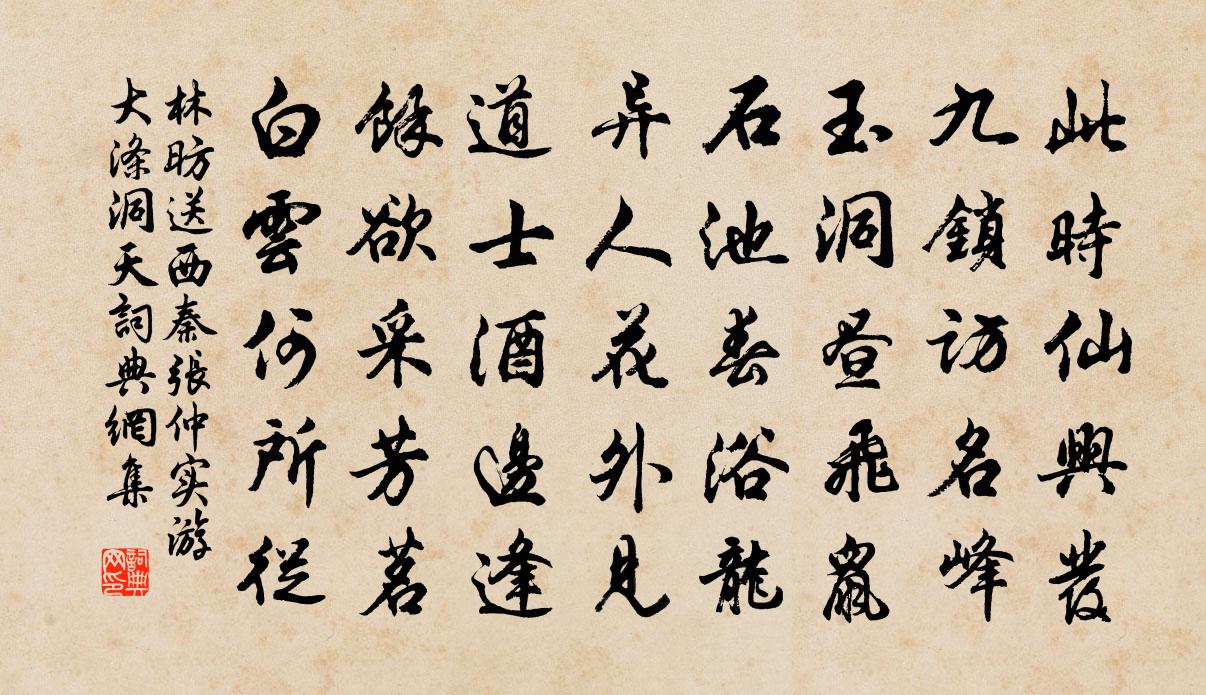 此時仙興發
九鎖访名峰
玉洞昼飛鼠
石池春浴龍
异人花外見
道士酒邊逢
餘欲采芳茗
白雲何所從
林昉送西秦張仲实游
大滌洞天詞典網集
詞典
网印